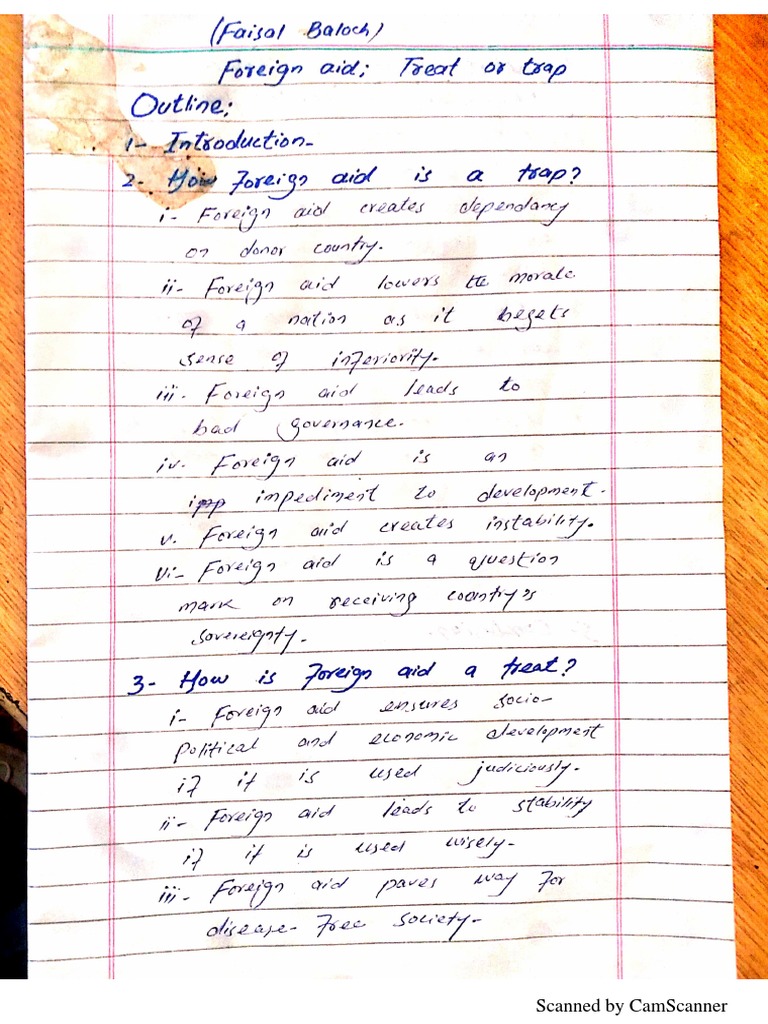 (Faisal Baloch)
Foreign aid; Treat or trap
Outline;
1- Introduction-
2- How Foreign aid is a trap?
i- Foreign aid creates dependancy
on donor country.
ii- Foreign aid lowers the morale
of a nation as it begets
sense of inferiority.
iii. Foreign aid leads to
bad governance.
iv. Foreign aid is an
impediment to development.
v. Foreign aid creates instability.
vi- Foreign aid is a question
mark on receiving country's
sovereignty.
3- How is Foreign aid a treat?
i- Foreign aid ensures socio-
political and economic development
if it is used judiciously.
ii- Foreign aid leads to stability
if it is used wisely-
iii- Foreign aid paves way for
disease-free society-
Scanned by CamScanner